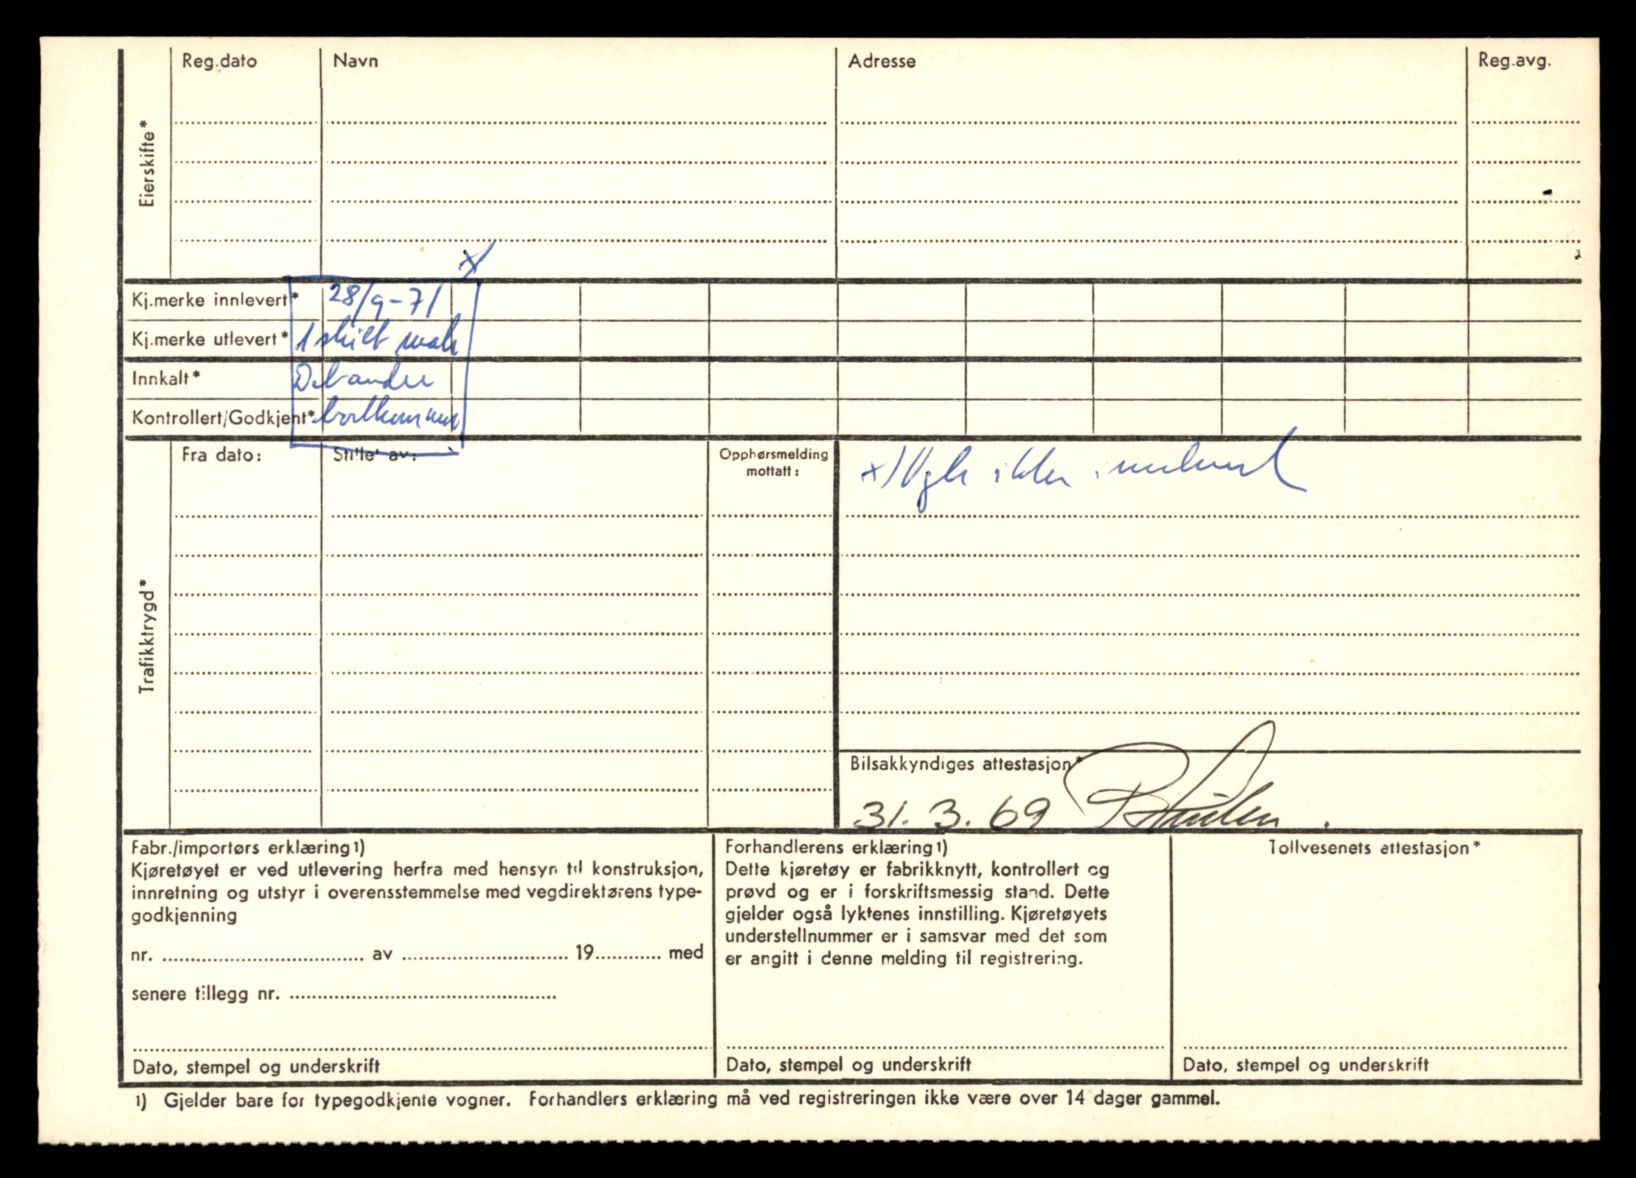 Reg.dato Navn Adresse Reg.avg.
Eierskifte*
x
Kj.merke innlevert* 28/9-71
Kj.merke utlevert* 1 skilt
Innkalt* Det andre
Kontrollert/Godkjent* bortkommet
Fra dato: Stillet av: Opphørsmelding
mottatt:
x) ikke innlevert
Trafikktrygd*
Bilsakkyndiges attestasjon*
31.3.69
Fabr./importørs erklæring1)
Kjøretøyet er ved utlevering herfra med hensyn til konstruksjon,
innretning og utstyr i overensstemmelse med vegdirektørens type-
godkjenning
nr. av 19 med
senere tillegg nr.
Dato, stempel og underskrift
Forhandlerens erklæring1)
Dette kjøretøy er fabrikknytt, kontrollert og
prøvd og er i forskriftsmessig stand. Dette
gjelder også lyktenes innstilling. Kjøretøyets
understellnummer er i samsvar med det som
er angitt i denne melding til registrering.
Dato, stempel og underskrift
Tollvesenets attestasjon*
Dato, stempel og underskrift
1) Gjelder bare for typegodkjente vogner. Forhandlers erklæring må ved registreringen ikke være over 14 dager gammel.